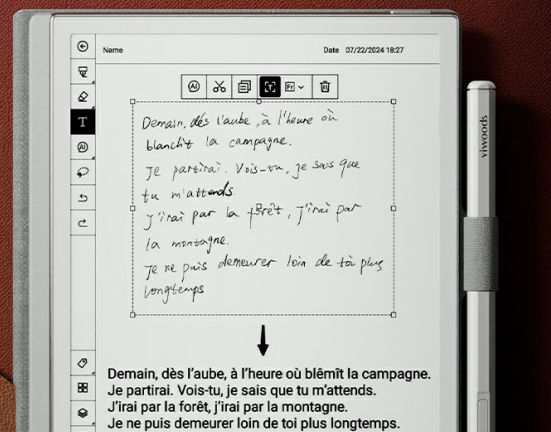 Name
Date 07/22/2024 18:27
Fr
T
Demain, dés l'aube, à l'heure où
blanchit la campagne.
Je partirai. Vois-tu, je sais que
tu m'attends
J'irai par la forêt, j'irai par
la montagne.
Je ne puis demeurer loin de toi plus
longtemps
Demain, dès l'aube, à l'heure où blêmît la campagne.
Je partirai. Vois-tu, je sais que tu m'attends.
J'irai par la forêt, j'irai par la montagne.
Je ne puis demeurer loin de toi plus longtemps.
viwoods